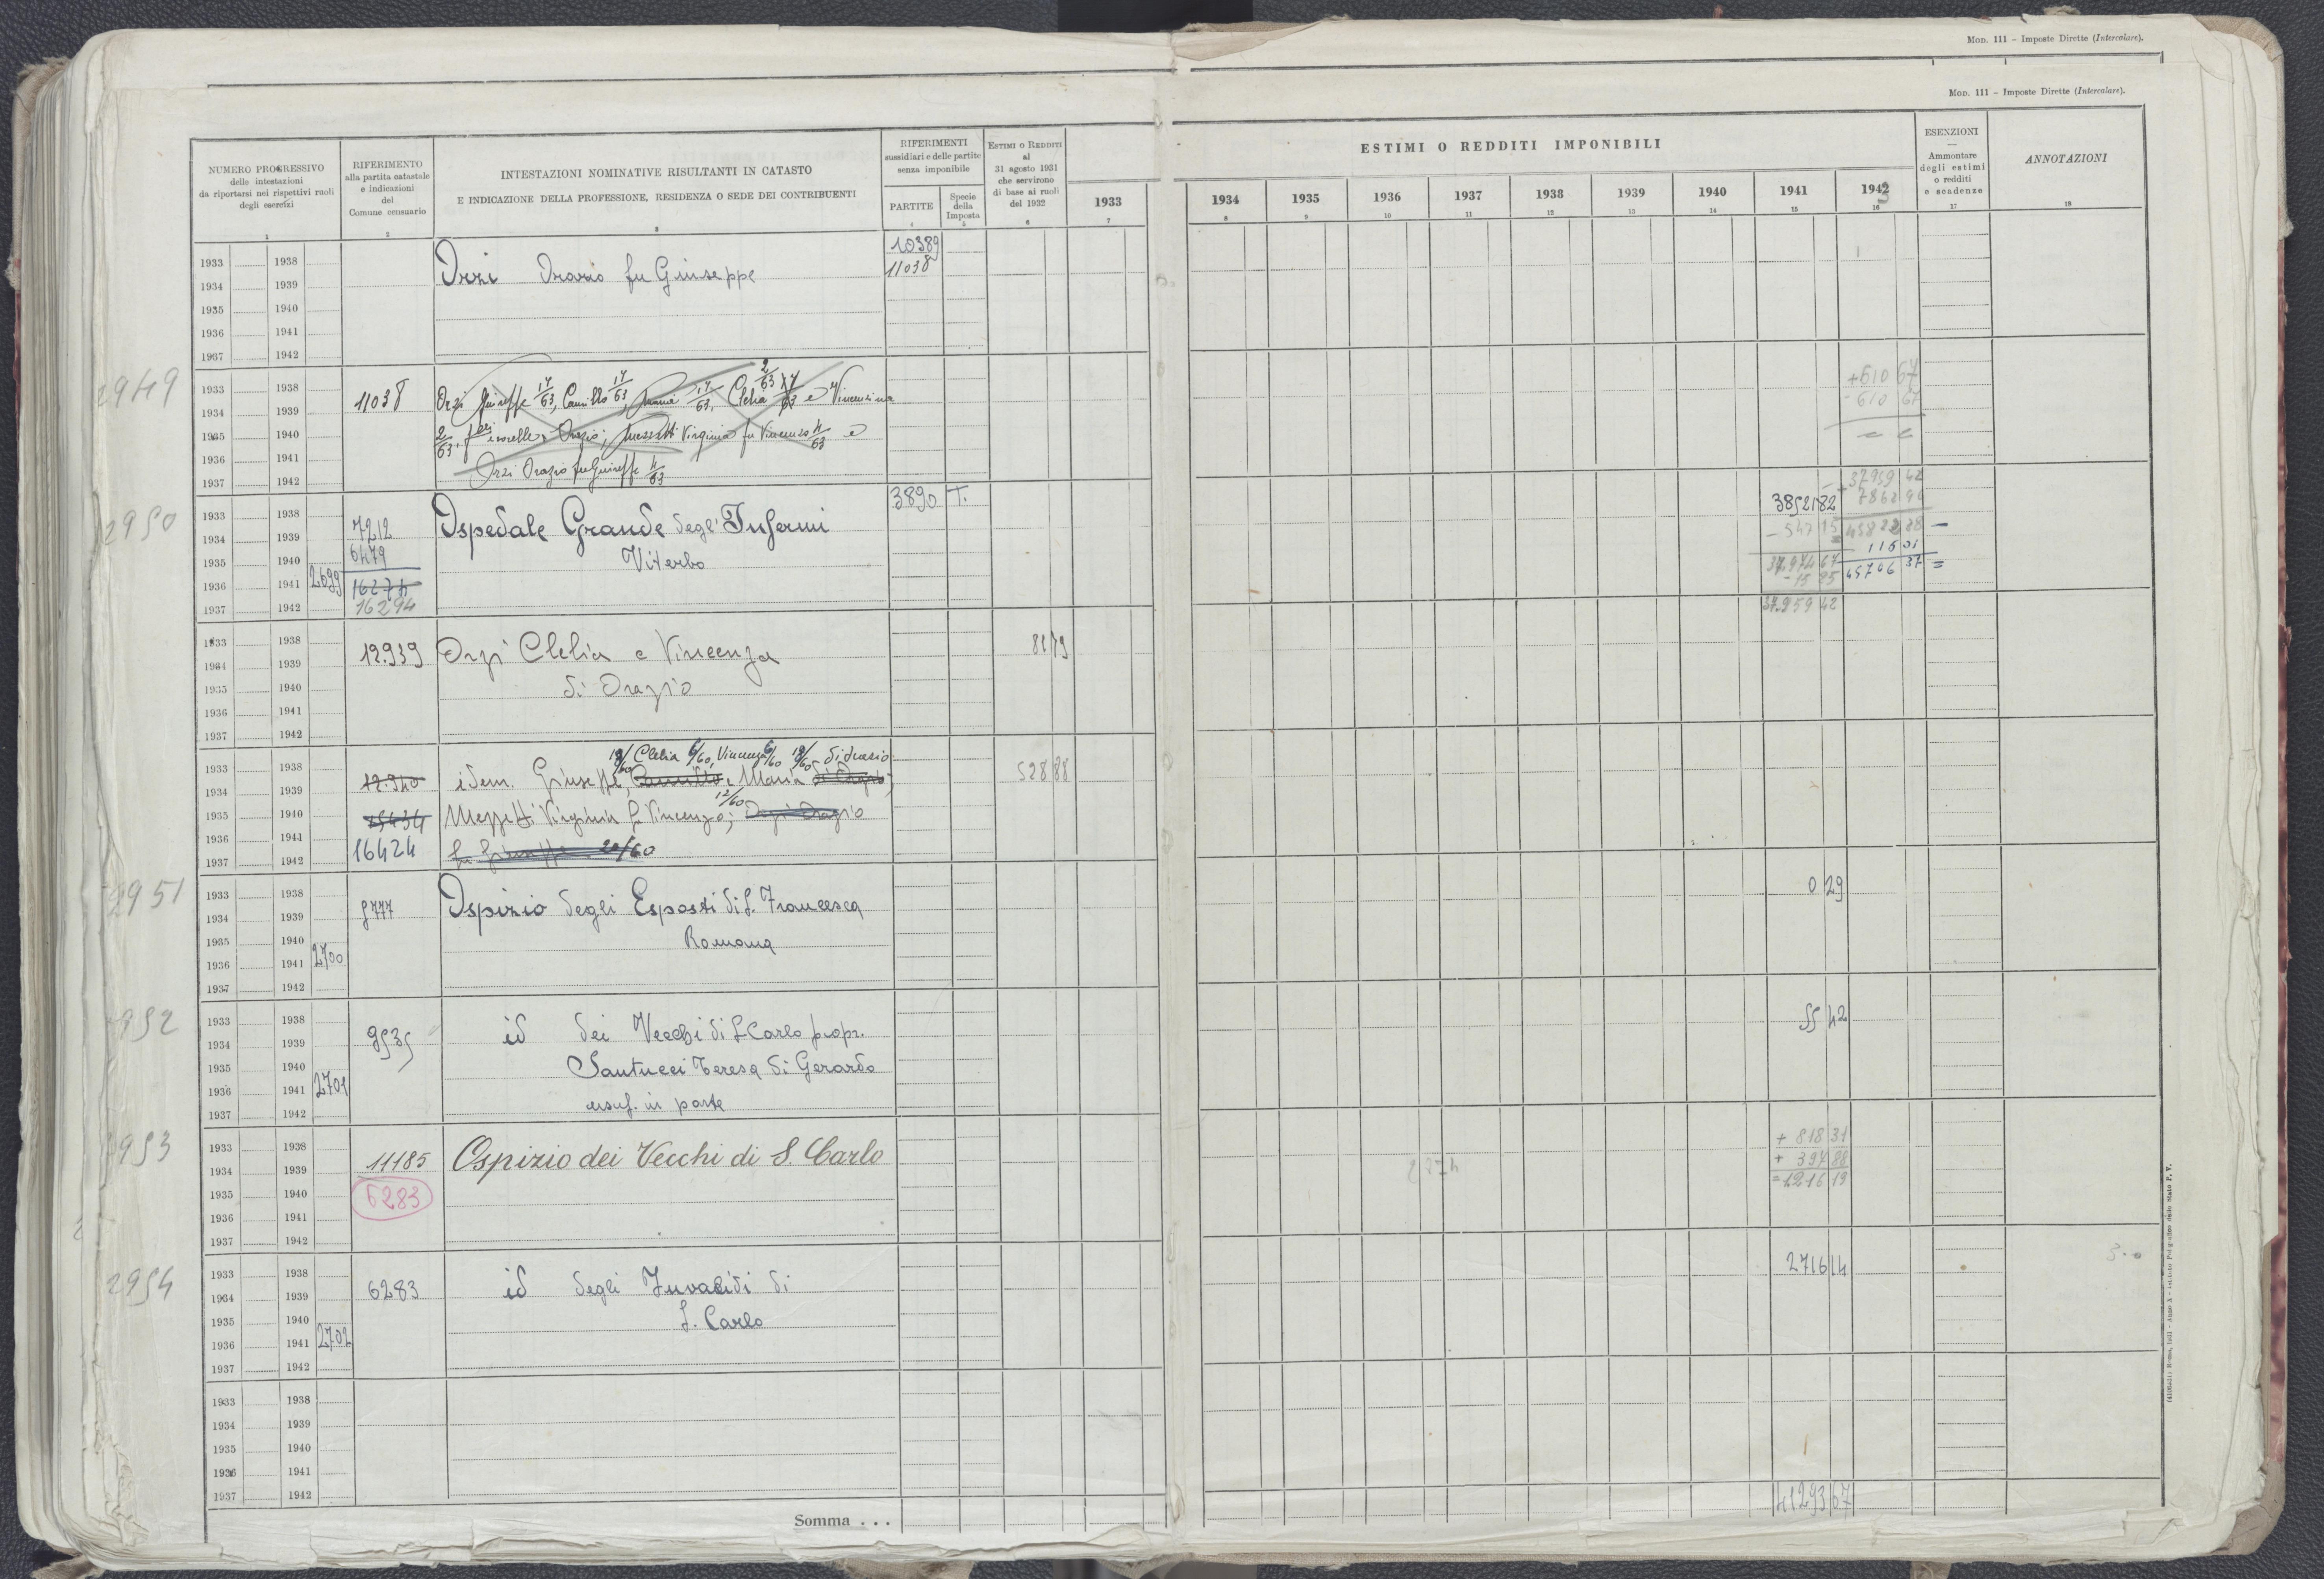 MOD. 111 – Imposte Dirette (Intercalare).
MOD. 111 – Imposte Dirette (Intercalare).
NUMERO PROGRESSIVO
delle intestazioni
da riportarsi nei rispettivi ruoli
degli esercizi
1
RIFERIMENTO
alla partita catastale
e indicazioni
del
Comune censuario
2
INTESTAZIONI NOMINATIVE RISULTANTI IN CATASTO
E INDICAZIONE DELLA PROFESSIONE, RESIDENZA O SEDE DEI CONTRIBUENTI
3
RIFERIMENTI
sussidiari e delle partite
senza imponibile
PARTITE
4
Specie
della
Imposta
5
ESTIMI O REDDITI
al
31 agosto 1931
che servirono
di base ai ruoli
del 1932
6
ESTIMI O REDDITI IMPONIBILI
1933 1934 1935 1936 1937 1938 1939 1940 1941 1943
7 8 9 10 11 12 13 14 15 16
ESENZIONI
Ammontare
degli estimi
o redditi
e scadenze
17
ANNOTAZIONI
18
10389
1933 1938 Orzi Orazio fu Giuseppe 11038
1934 1939
1935 1940
1936 1941
1937 1942
2949
1933 1938 11038 Orzi Giuseppe 17/63, Camillo 17/63, Maria 17/63, Clelia 2/63 e Vincenzina +610 67
1934 1939 2/63, f.lli e sorelle di Orazio; Mezzetti Virginia fu Vincenzo 4/63 e 610 67
1935 1940 Orzi Orazio fu Giuseppe 4/63
1936 1941
1937 1942
2950
1933 1938 7212 Ospedale Grande degl' Infermi 3890 T. 38521 82 37959 42
1934 1939 6479 Viterbo – 547 15 7862 96
1935 1940 16274 37.974 67 45822 38
1936 1941 2699 16294 – 15 25 116 01
1937 1942 37.959 42 45706 37
1933 1938 12.939 Orzi Clelia e Vincenza 81 79
1934 1939 di Orazio
1935 1940
1936 1941
1937 1942
Clelia 6/60, Vincenza 6/60 di Orazio
1933 1938 12.940 idem. Giuseppe, Camillo e Maria di Orazio; 528 88
1934 1939 15434 Mezzetti Virginia fu Vincenzo; 12/60 Orzi Orazio
1935 1940 16424 fu Giuseppe 20/60
1936 1941
1937 1942
2951
1933 1938 Ospizio degli Esposti di S. Francesca 0 29
1934 1939 Romana
1935 1940
1936 1941 2700
1937 1942
2952
1933 1938 9535 id dei Vecchi di S Carlo propr. 55 42
1934 1939 Santucci Teresa di Gerardo
1935 1940 usuf. in parte
1936 1941 2701
1937 1942
2953
1933 1938 11185 Ospizio dei Vecchi di S. Carlo + 818 31
1934 1939 6283 + 397 88
1935 1940 = 1216 19
1936 1941
1937 1942
2954
1933 1938 6283 id degli Invalidi di 2716 14
1934 1939 S. Carlo
1935 1940
1936 1941 2702
1937 1942
1933 1938
1934 1939
1935 1940
1936 1941
1937 1942
Somma . . . 41293 67